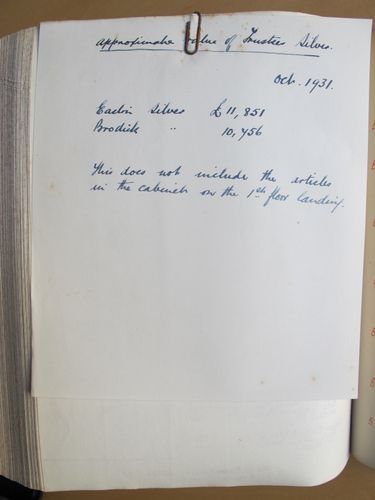 Approximate value of Trustees Silver.
Oct. 1931.
Easton Silver £11,851
Brodick " 10,456
This does not include the articles
in the cabinet on the 1st floor landing.